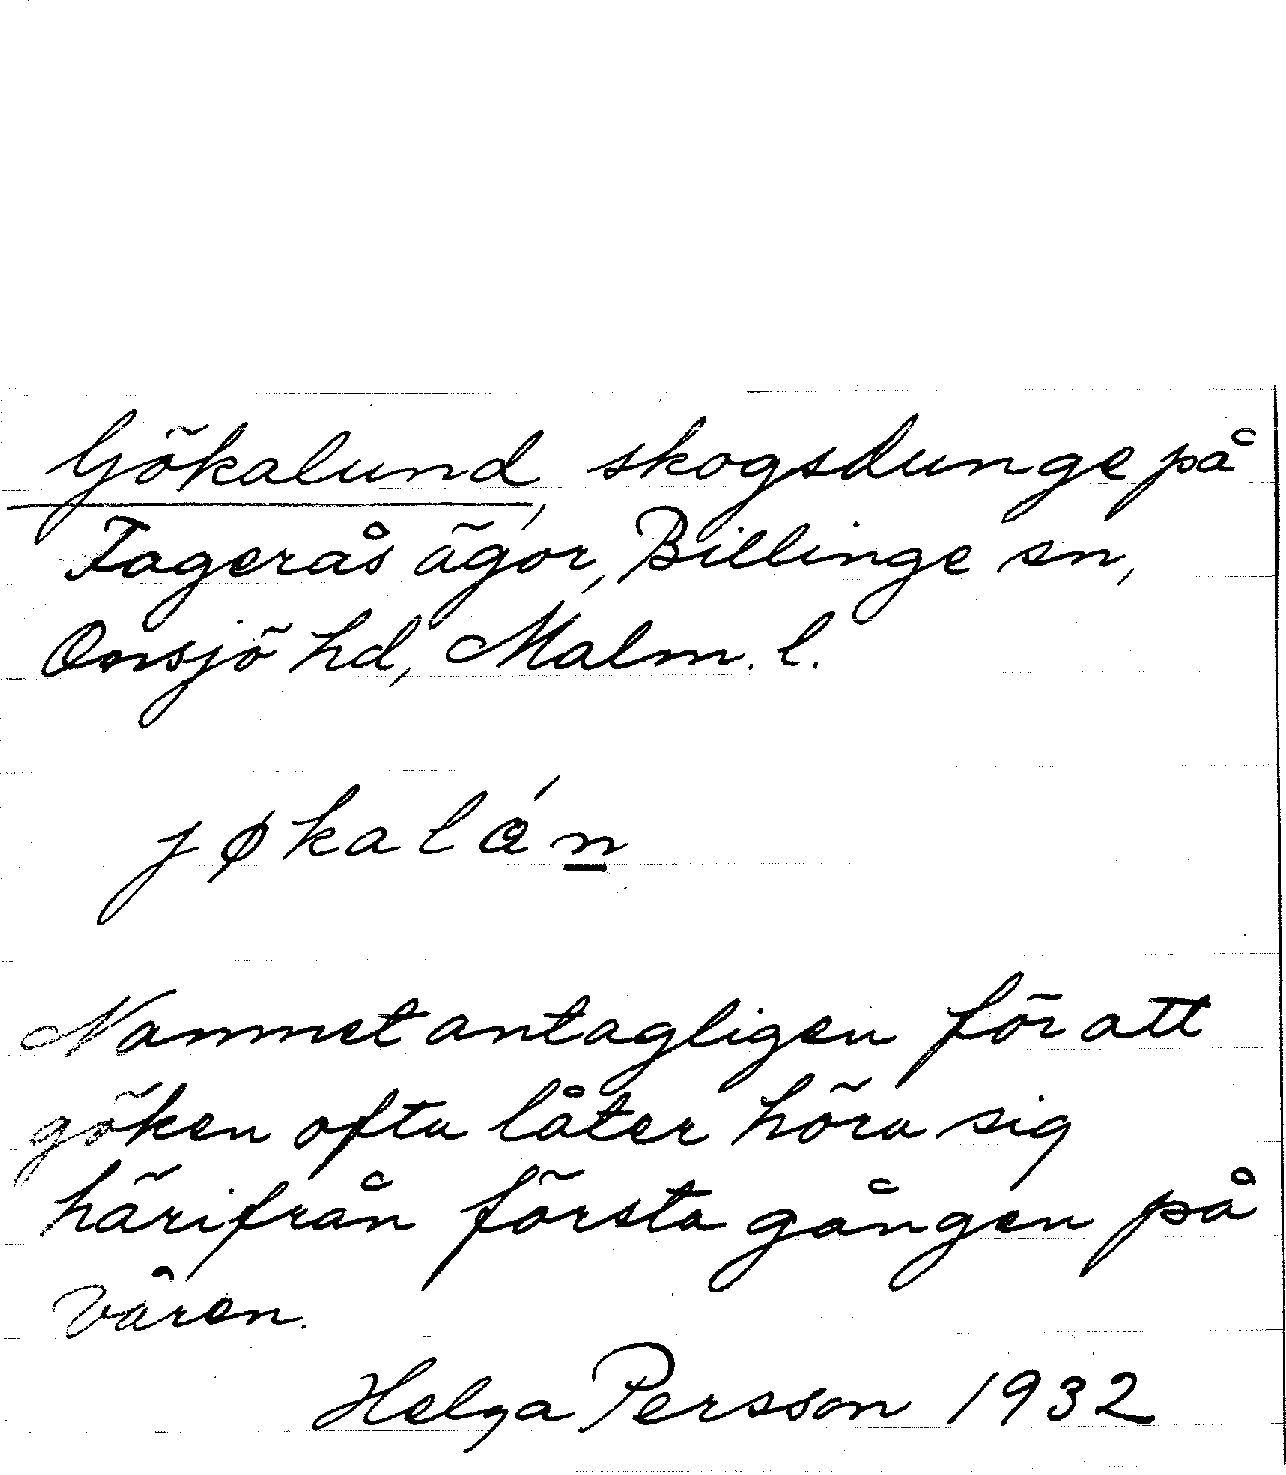 Gökalund, skogsdunge på
Tagerås ägor, Billinge sn,
Onsjö hd, Malm. l.
jøkalán
Namnet antagligen för att
göken ofta låter höra sig
härifrån första gången på
våren.
Helga Persson 1932